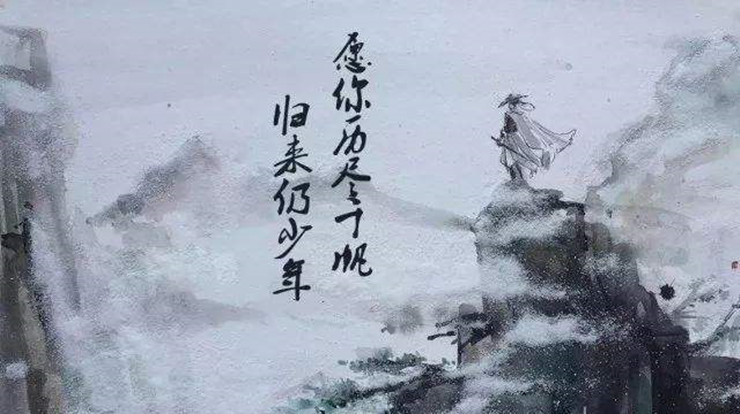 愿你历尽千帆
归来仍少年